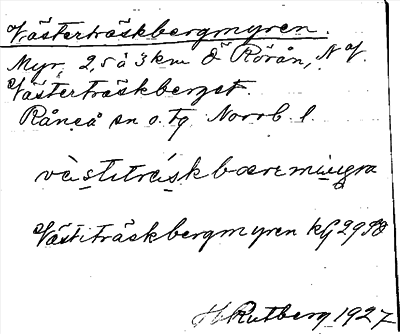 Västerträskbergmyren.
Myr, 2,5 à 3 km Ö Rörån, N V.
Västerträskberget.
Råneå sn o. tg Norrb. l.
västiträskbæremiurgra
Västiträskbergmyren kg 2998
H Rutberg 1927